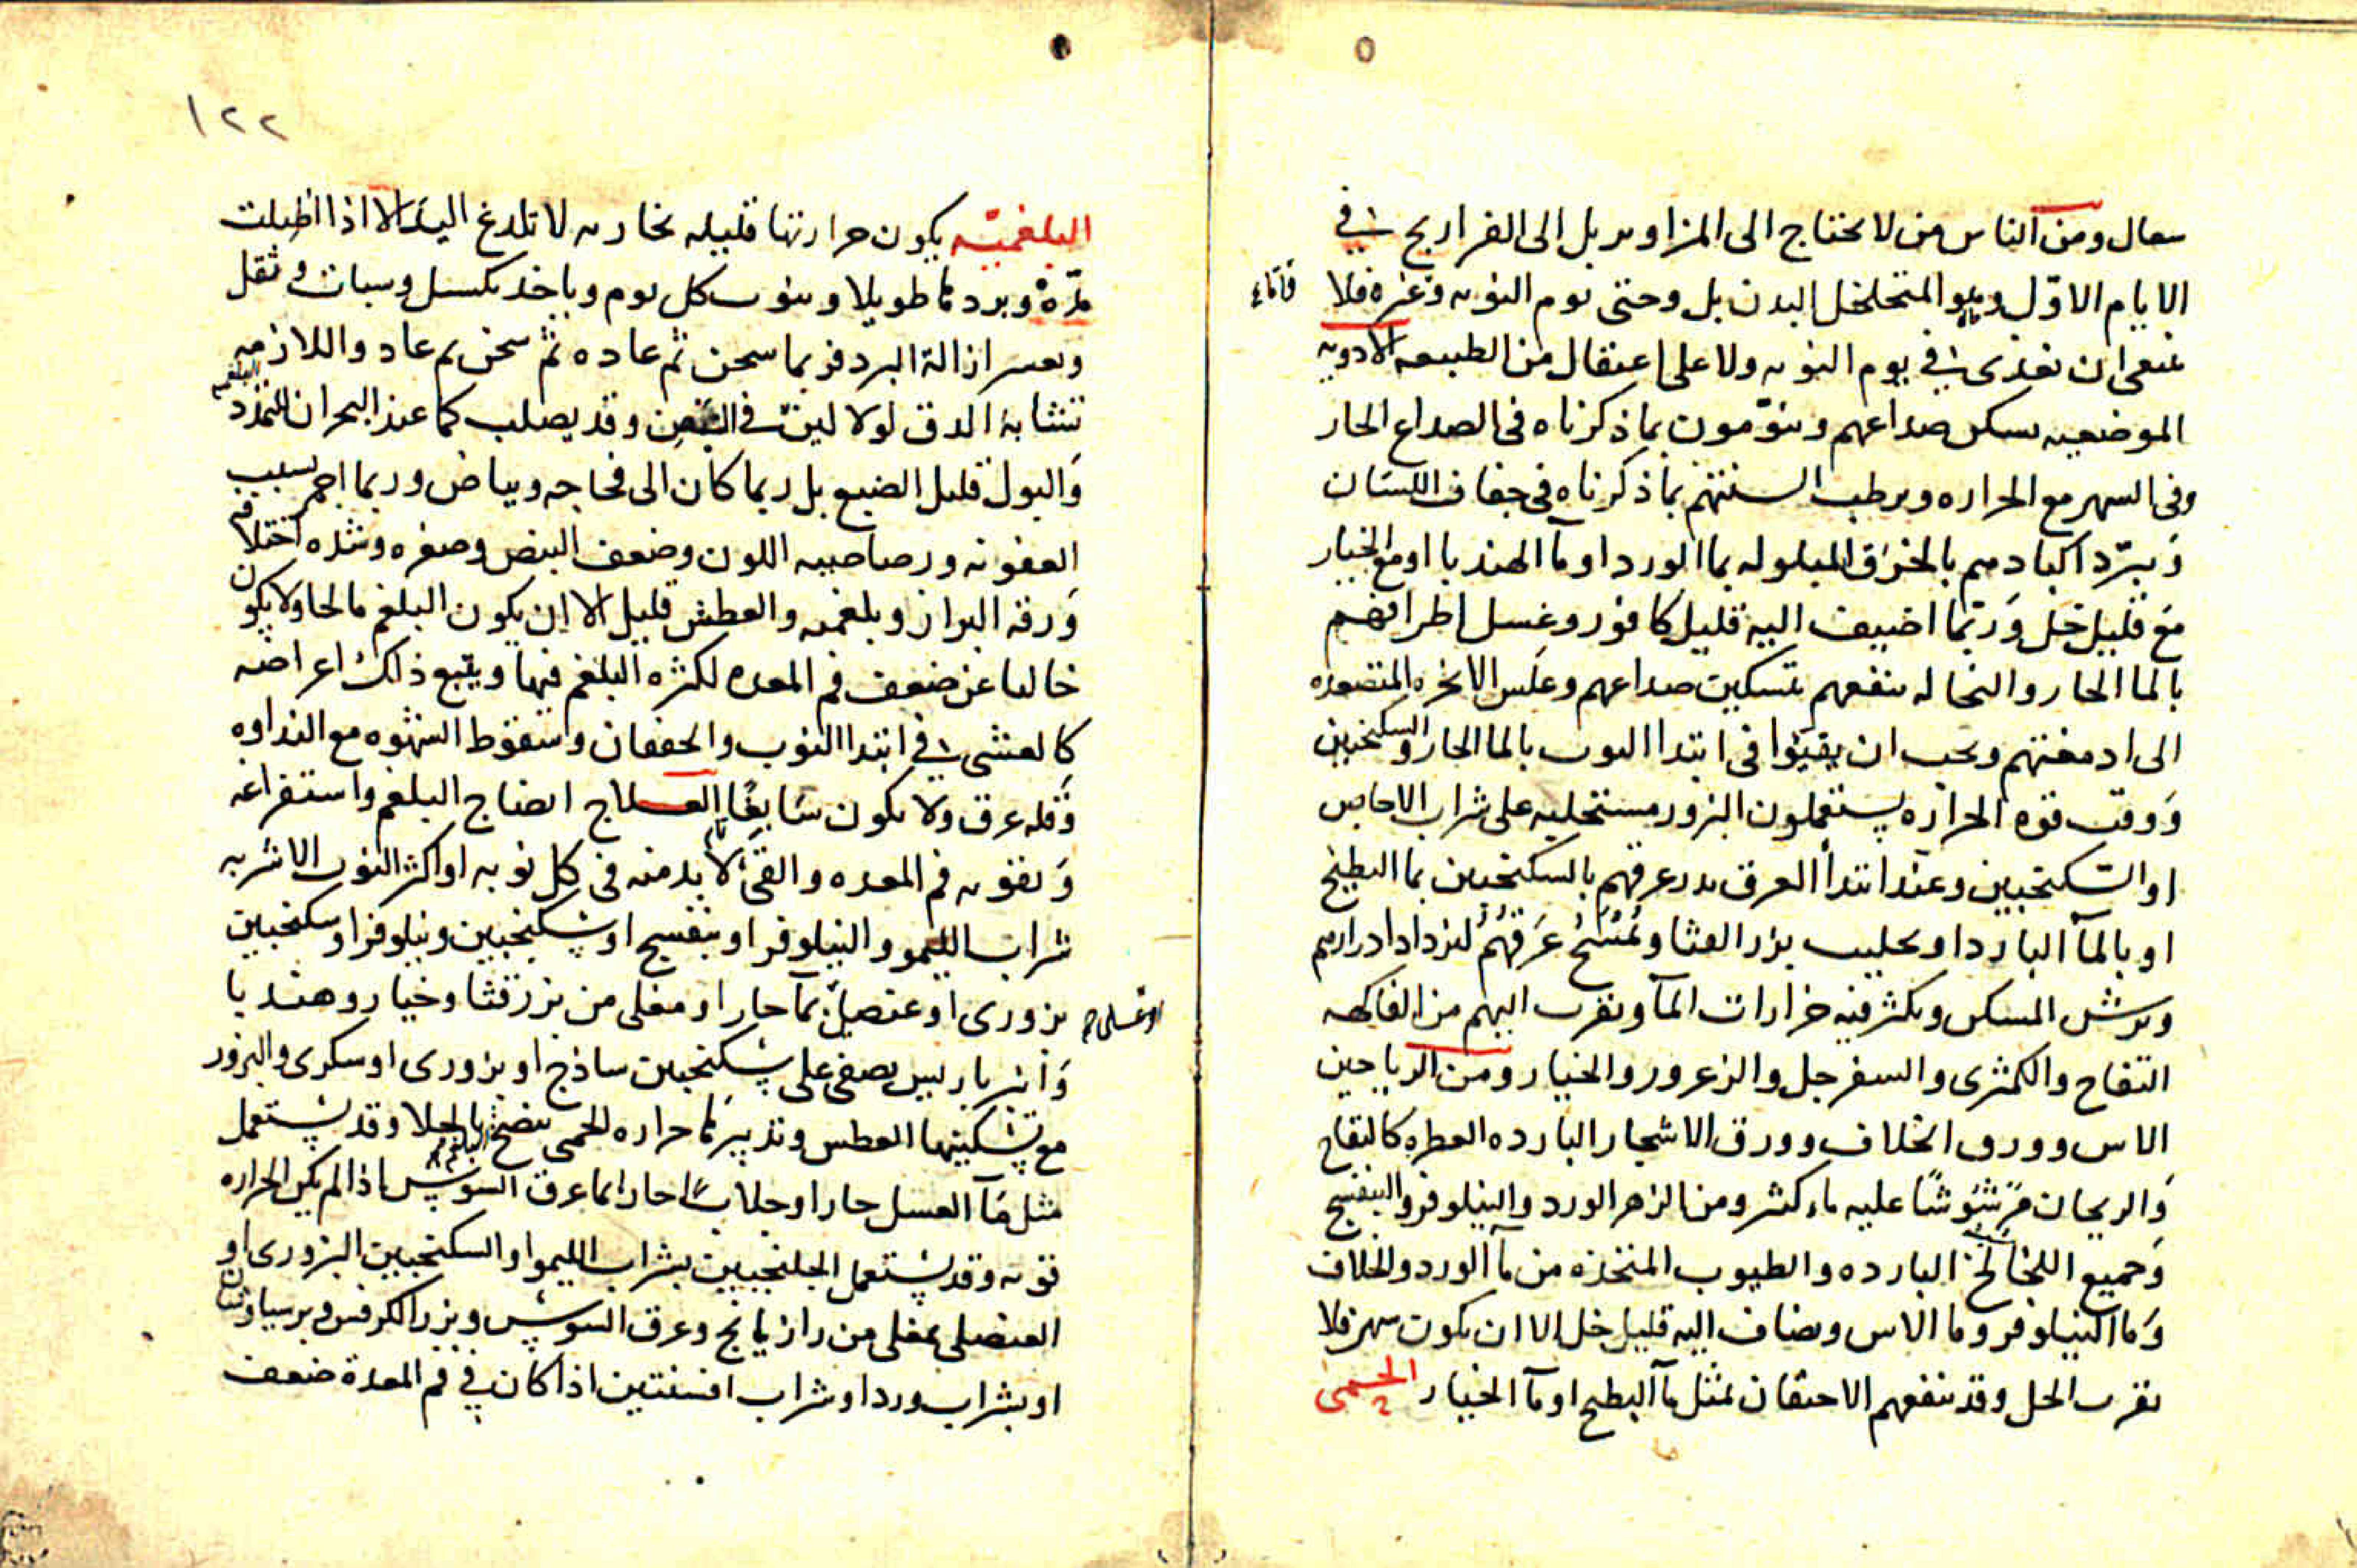 سعال ومن الناس من لا يحتاج الى المزاوير بل الى الفراريج في
الايام الاول وهو المتخلخل البدن بل وحتى يوم النوبه وغيره فلا
ينبغي ان يغذى في يوم النوبه ولا على اعتقال من الطبيعه الادويه
الموضعيه يسكن صداعهم وينومون بما ذكرناه في الصداع الحار
وفي السهر مع الحراره ويرطب السنتهم بما ذكرناه في جفاف اللسان
وَيبرّد اكبادهم بالخرق المبلوله بما الورد او مآ الهندبا او مع الخيار
مع قليل خل وَربما اضيف اليه قليل كافور وغسل اطرافهم
بالما الحار والنخاله ينفعهم بتسكين صداعهم وعكس الابخره المتصعده
الى ادمغتهم ويجب ان يقيّوا في ابتدا النوب بالما الحار والسكنجبين
وَوقت قوه الحراره يستعملون البزور مستحلبه على شراب الاجاص
او السكنجبين وعند ابتدأ العرق يدر عرقهم بالسكنجبين بما البطيخ
او بالمآ البارد او بحليب بزر القثا ويُمْسَحُ عَرَقهُمْ ليزداد ادرارهم
ويرش المسكن ويكثر فيه خرارات المآ ويقرب اليهم من الفاكهه
التفاح والكمثرى والسفرجل والزعرور والخيار ومن الرياحين
الاس وورق الخلاف وورق الاشجار البارده العطره كالتفاح
وَالريحان مَرْشوشًا عليه ماء كثير ومن الزهر الورد والنيلوفر والبنفسج
وَجميع اللخالخ البارده والطيوب المتخذه من مآ الورد والخلاف
وَما النيلوفر وما الاس ويضاف اليه قليل خل الا ان يكون سهر فلا
يقرب الخل وقد ينفعهم الاحتقان بمثل مآ البطيخ او مآ الخيار الحمى
١٢٢
البلغميّه يكون حرارتها قليله بخاريه لا تلدغ اليد الا اذا اطيلت
مدّة وبردها طويلا وينوب كل يوم وياخذ بكسل وسبات وثقل
ويعسر ازالة البرد فربما سخن ثم عاده ثم سخن ثم عاد واللازمه
تتشابه الدق لولا لين في النبض وقد يصلب كما عند البحران للتمدد
وَالبول قليل الصبغ بل ربما كان الى فجاجه وبياض وربما احمر بسبب
العفونه ورصاصيه اللون وضعف النبض وصغره وشده اختلافه
وَرقه البراز وبلغميه والعطش قليل الا ان يكون البلغم مالحا ولا يكون
خاليا عن ضعف فم المعده لكثره البلغم فيها ويتبع ذلك اعراضه
كالغشي في ابتدا النوب والخفقان وسقوط الشهوه مع النداوه
وَقله عرق ولا يكون سَابغًا العـلاج انضاج البلغم واستفراغه
وَتقويه فم المعده والقئ لا بد منه في كل نوبه او اكثر النوب الاشربه
شراب الليمو والنيلوفر او بنفسج او سكنجبين ونيلوفر او سكنجبين
بزوري او عنصلي بمآ حار او مغلى من بزر قثا وخيار وهندبا
وَانبر باريس يصفى على سكنجبين ساذج او بزوري او سكري والبزور
مع تسكينها العطش وتدبيرها حراره الحمى ينضج بالجلا وقد يستعمل
مثل مآ العسل حارا او جلابًا حارا بما عرق السوس اذا لم يكن الحراره
قويه وقد يستعمل الجلنجبين بشراب الليمو او السكنجبين البزوري او
العنصلي بمغلى من رازيانج وعرق السوس وبزر الكرفس وبرسياوشان
او بشراب ورد او شراب افسنتين اذا كان في فم المعدة ضعف